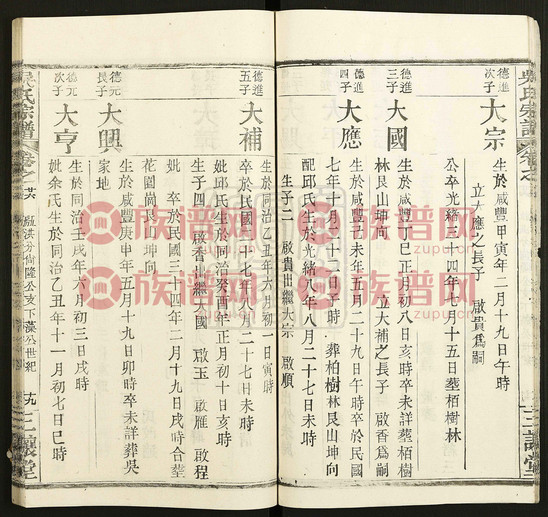 吳氏宗譜
德進
次子
大宗
生於咸豐甲寅年二月十九日午時
立大應之長子 啟貴爲嗣
公卒光緒三十四年七月十五日塟栢樹林
德進
三子
大國
生於咸豐丁巳正月初八日亥時卒未詳塟栢樹
林艮山坤向 立大補之長子 啟香爲嗣
德進
四子
大應
生於咸豐己未年五月二十九日午時卒於民國
七年十月二十二日子時 葬柏樹林艮山坤向
配邱氏生於光緒 年八月二十七日未時
生子二 啟貴出繼大宗 啟順
德進
五子
大補
生於同治乙丑年六月初一日寅時
卒於民國二十七年八月二十七日未時
妣邱氏生於同治癸酉年正月初十日亥時
生子四 啟香出繼大國 啟玉 啟雁 啟程
妣 卒於民國三十四年二月十九日戌時合塟
花園崗艮山坤向
德元
長子
大興
生於咸豐庚申年五月十九日卯時卒未詳葬吳
家地
德元
次子
大亨
生於同治壬戌年六月初三日戌時
妣余氏生於同治乙丑年十一月初七日巳時
吳氏宗譜
卷之
廿六
十九
三讓堂
族谱网
zupu.cn
族谱网
zupu.cn
族谱网
zupu.cn
族谱网
zupu.cn